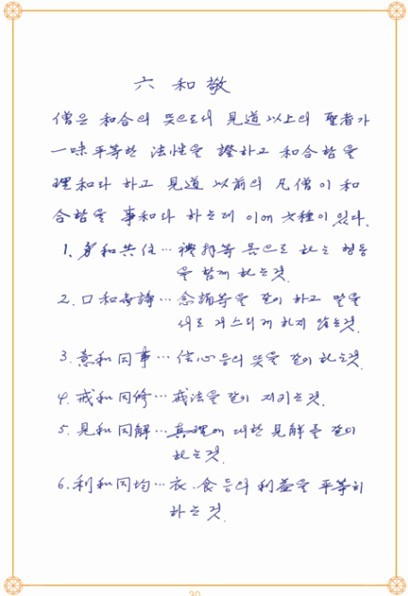 六和敬
僧은 和合의 뜻으로서 見道以上의 聖者가
一味平等한 法性을 證하고 和合함을
理和다 하고 見道 以前의 凡僧이 和
合함을 事和다 하는데 이에 六種이 있다.
1. 身和共住… 禮拜等 몸으로 하는 행동
을 함께 하는것.
2. 口和無諍… 念誦等을 같이 하고 말을
서로 거스리게 하지 않는것.
3. 意和同事… 信心등의 뜻을 같이 하는것.
4. 戒和同修… 戒法을 같이 지키는것.
5. 見和同解… 真理에 대한 見解를 같이
하는것.
6. 利和同均… 衣.食등의 利益을 平等히
하는것.
30